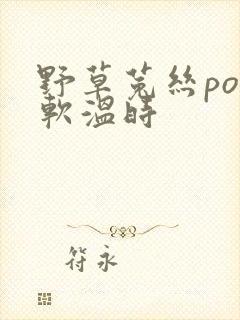 野草菟絲po
軟溫時
符永